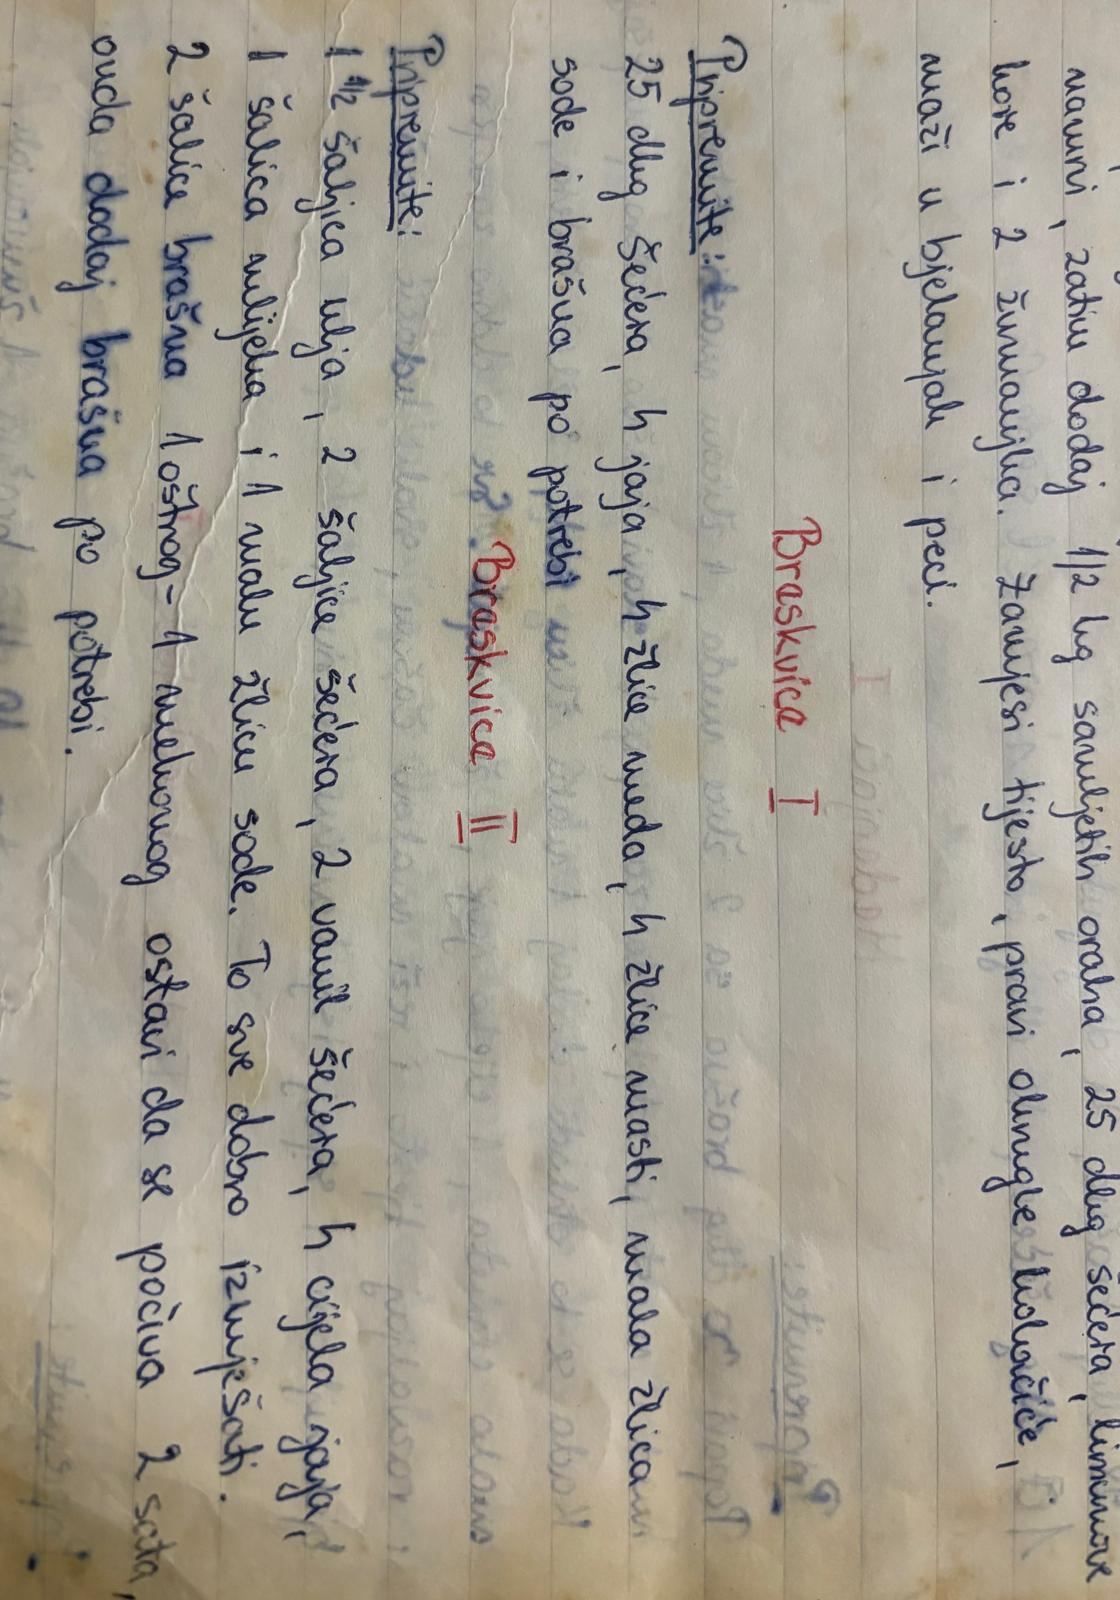 mami, zatim dodaj 1/2 kg samljetih oraha, 25 dkg šećera, limunove
kore i 2 žumanjka. Zamjesi tijesto, pravi okrugle kolačiće,
maži u bjelanjak i peci.
Braskvice I
Pripremite:
25 dkg šećera, 4 jaja, 4 žlice meda, 4 žlice masti, mala žlica
sode i brašna po potrebi
Braskvice II
Pripremite:
1 1/2 šaljica ulja, 2 šaljice šećera, 2 vanil šećera, 4 cijela jaja,
1 šalica mlijeka i 1 malu žlicu sode. To sve dobro izmješati.
2 šalice brašna 1 oštrog - 1 mekonog ostavi da se počiva 2 sata,
onda dodaj brašna po potrebi.